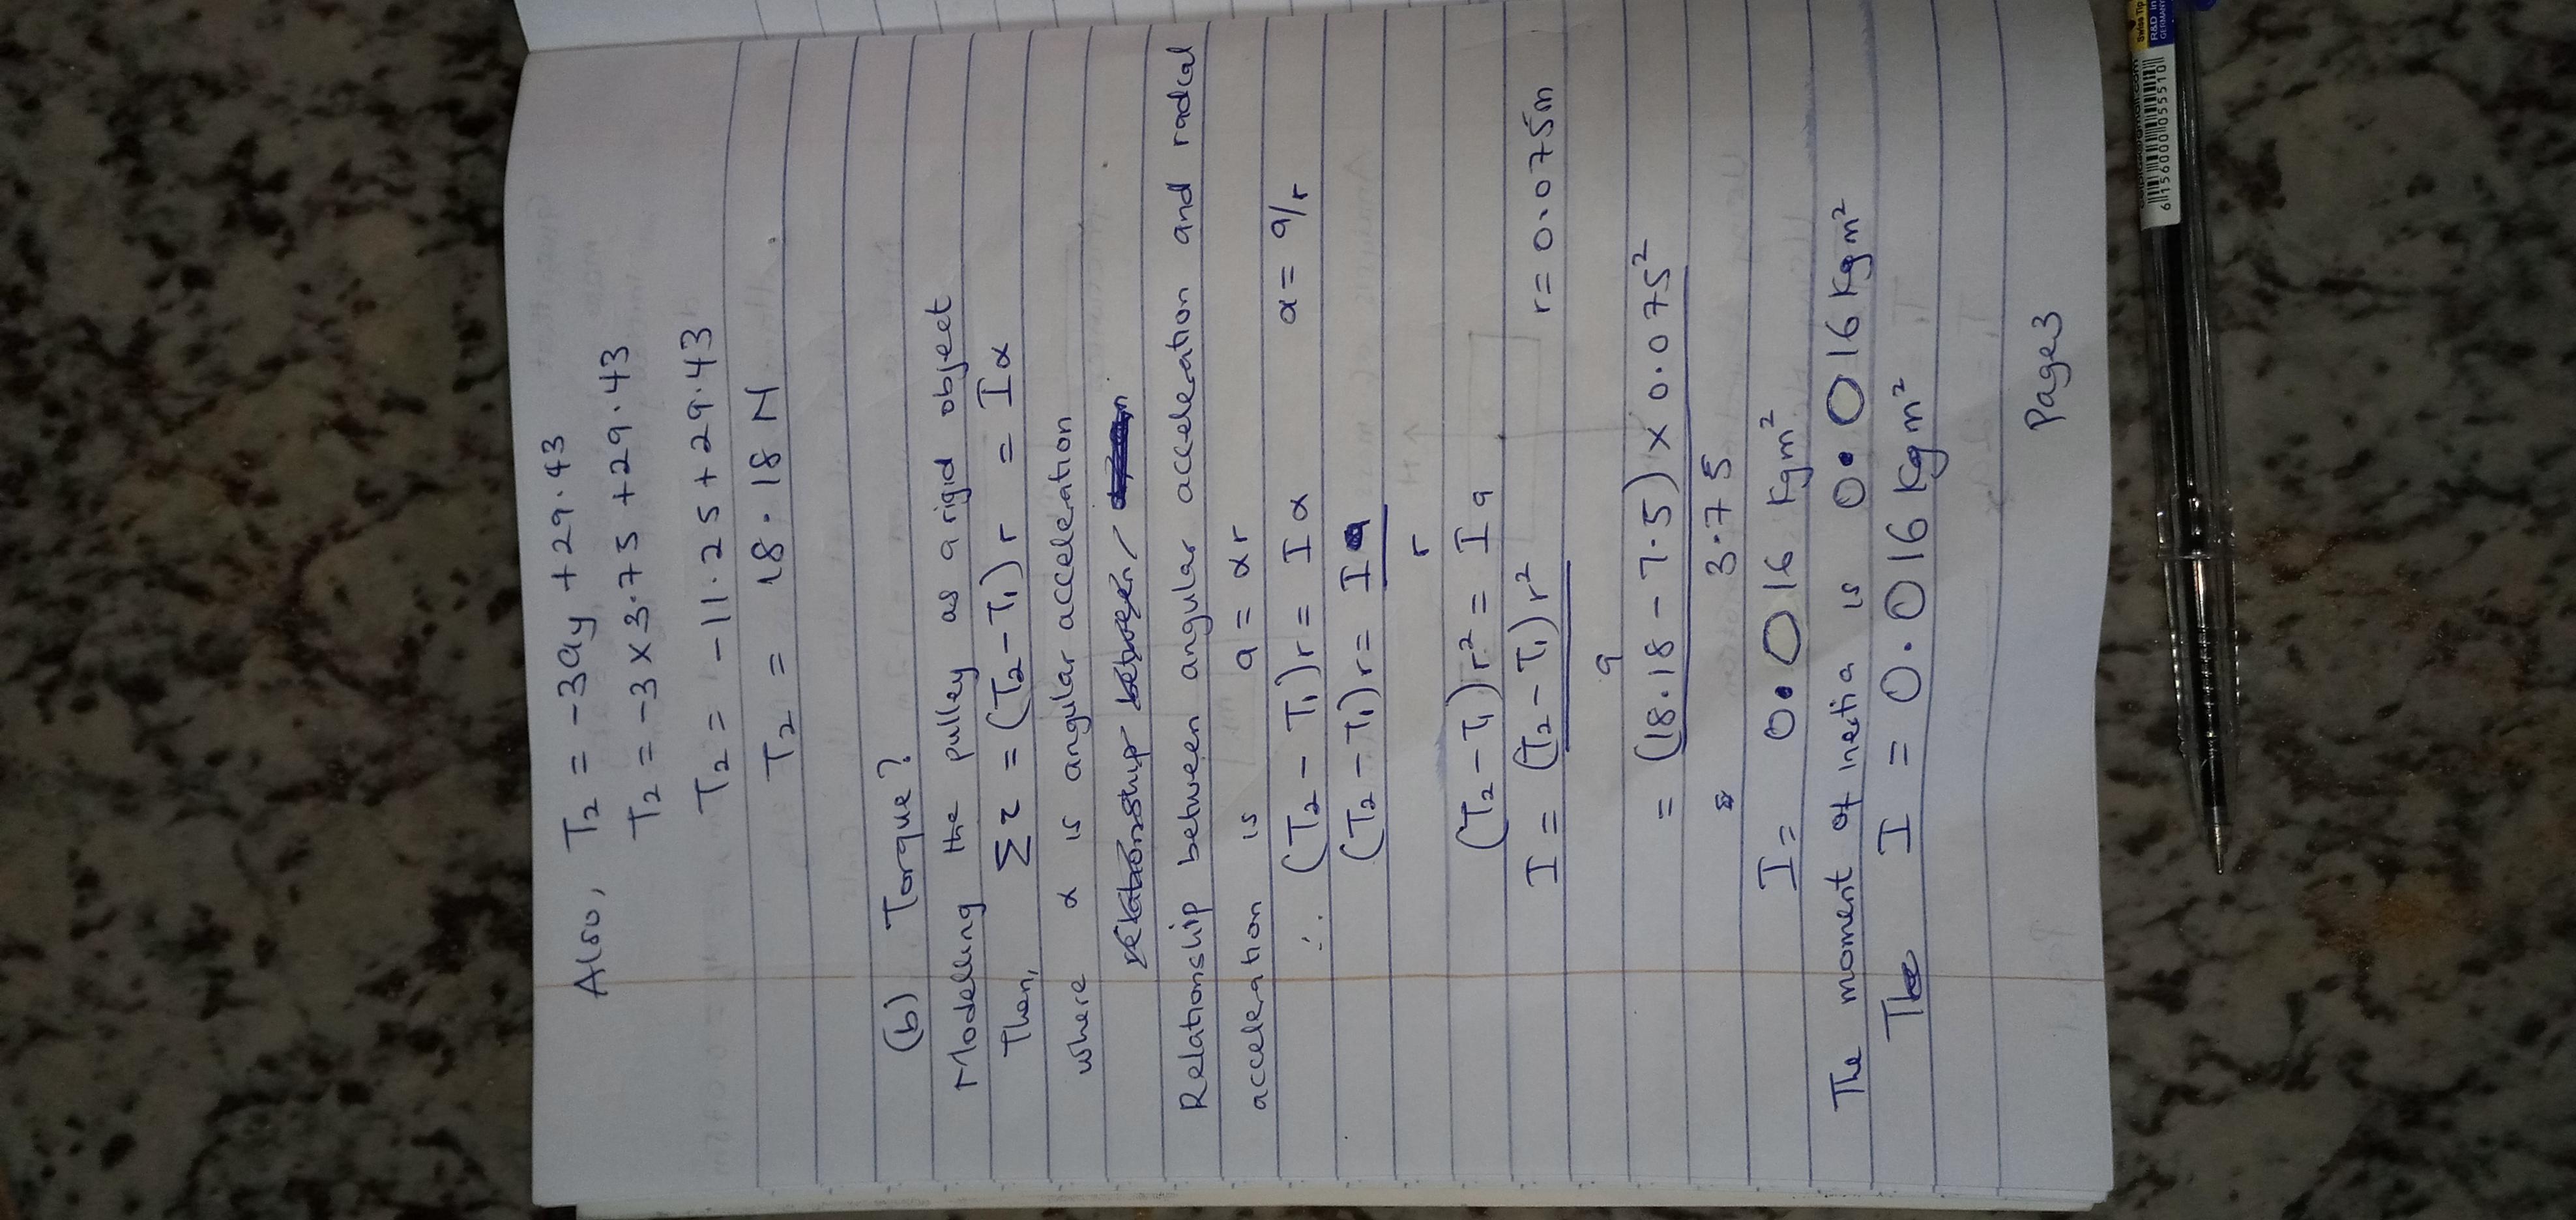 Also, T₂ = -3ay + 29.43
T₂ = -3 × 3.75 + 29.43
T₂ = -11.25 + 29.43
T₂ = 18.18 N
(b) Torque?
Modelling the pulley as a rigid object
Then, Στ = (T₂ - T₁) r = Iα
where α is angular acceleration
Relationship between
Relationship between angular acceleration and radial
acceleration is a = αr
∴ (T₂ - T₁)r = Iα α = a/r
(T₂ - T₁)r = Ia
r
(T₂ - T₁)r² = Ia
I = (T₂ - T₁)r² r = 0.075m
a
= (18.18 - 7.5) × 0.075²
3.75
I = 0.016 Kgm²
The moment of inertia is 0.016 Kgm²
The I = 0.016 Kgm²
Page3
Swiss Tip
R&D in
GERMANY
6156000055510